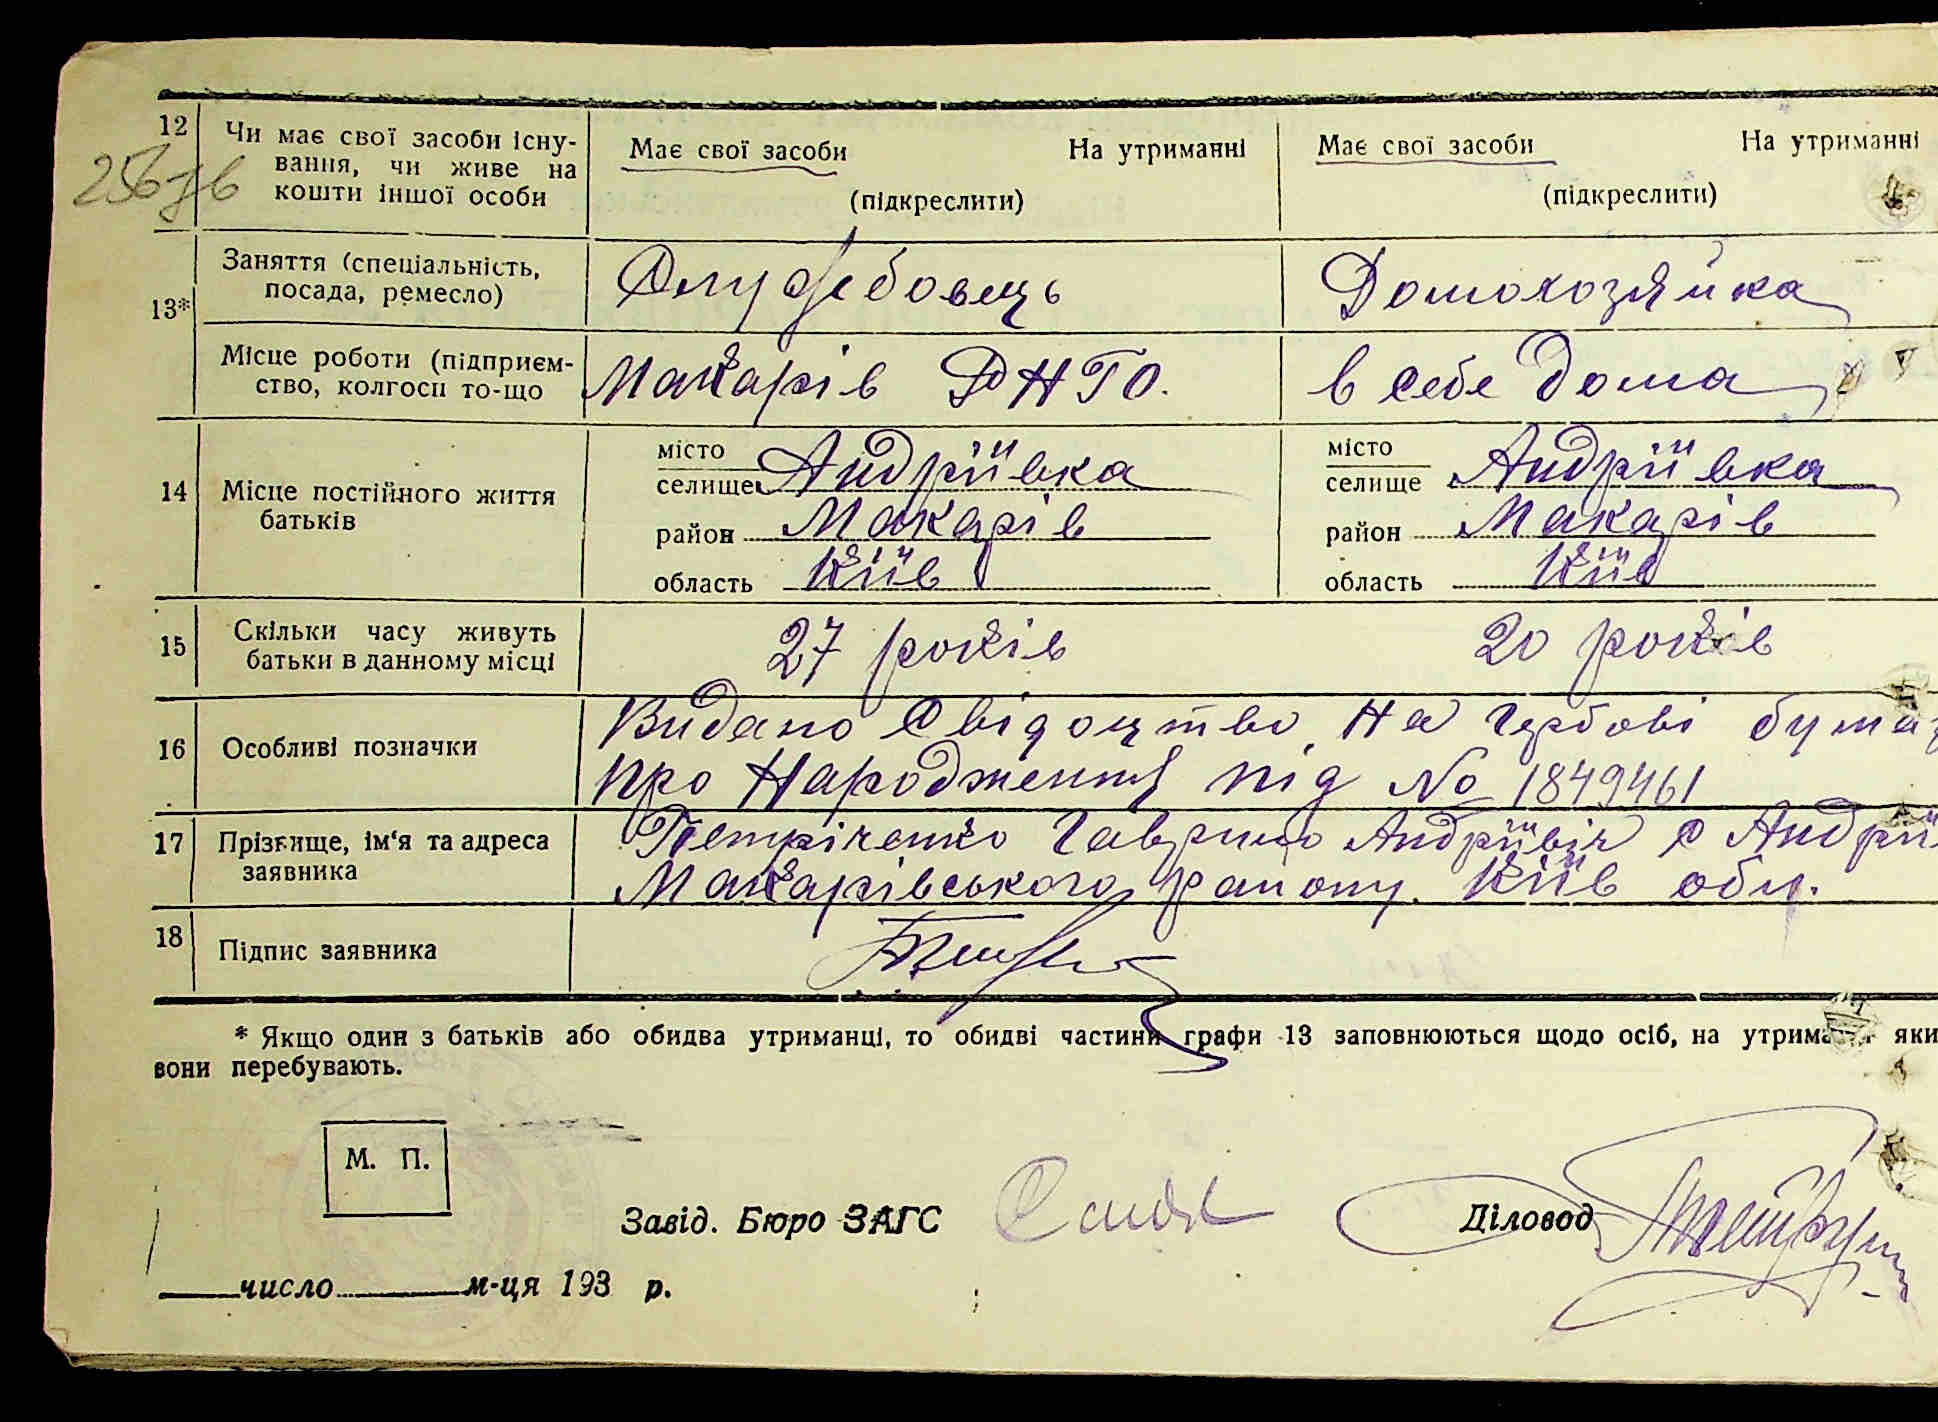 12
256 зв
Чи має свої засоби існу-
вання, чи живе на
кошти іншої особи
Має свої засоби На утриманні
(підкреслити)
Має свої засоби На утриманні
(підкреслити)
13*
Заняття (спеціальність,
посада, ремесло)
Службовець
Домохозяйка
Місце роботи (підприєм-
ство, колгосп то-що
Макарів
в себе дома
14
Місце постійного життя
батьків
місто
селище Андріївка
район Макарів
область Київ
місто
селище Андріївка
район Макарів
область Київ
15
Скільки часу живуть
батьки в данному місці
27 років
20 років
16
Особливі позначки
Видано Свідоцтво На Гербові
про Народження під No 1849461
17
Прізвище, ім'я та адреса
заявника
Петріченко Гаврило Андрійвіч с Андрії
Макарівського району. Київ обл.
18
Підпис заявника
* Якщо один з батьків або обидва утриманці, то обидві частини графи 13 заповнюються щодо осіб, на утриманні яки
вони перебувають.
М. П.
Завід. Бюро ЗАГС
Діловод
число м-ця 193 р.